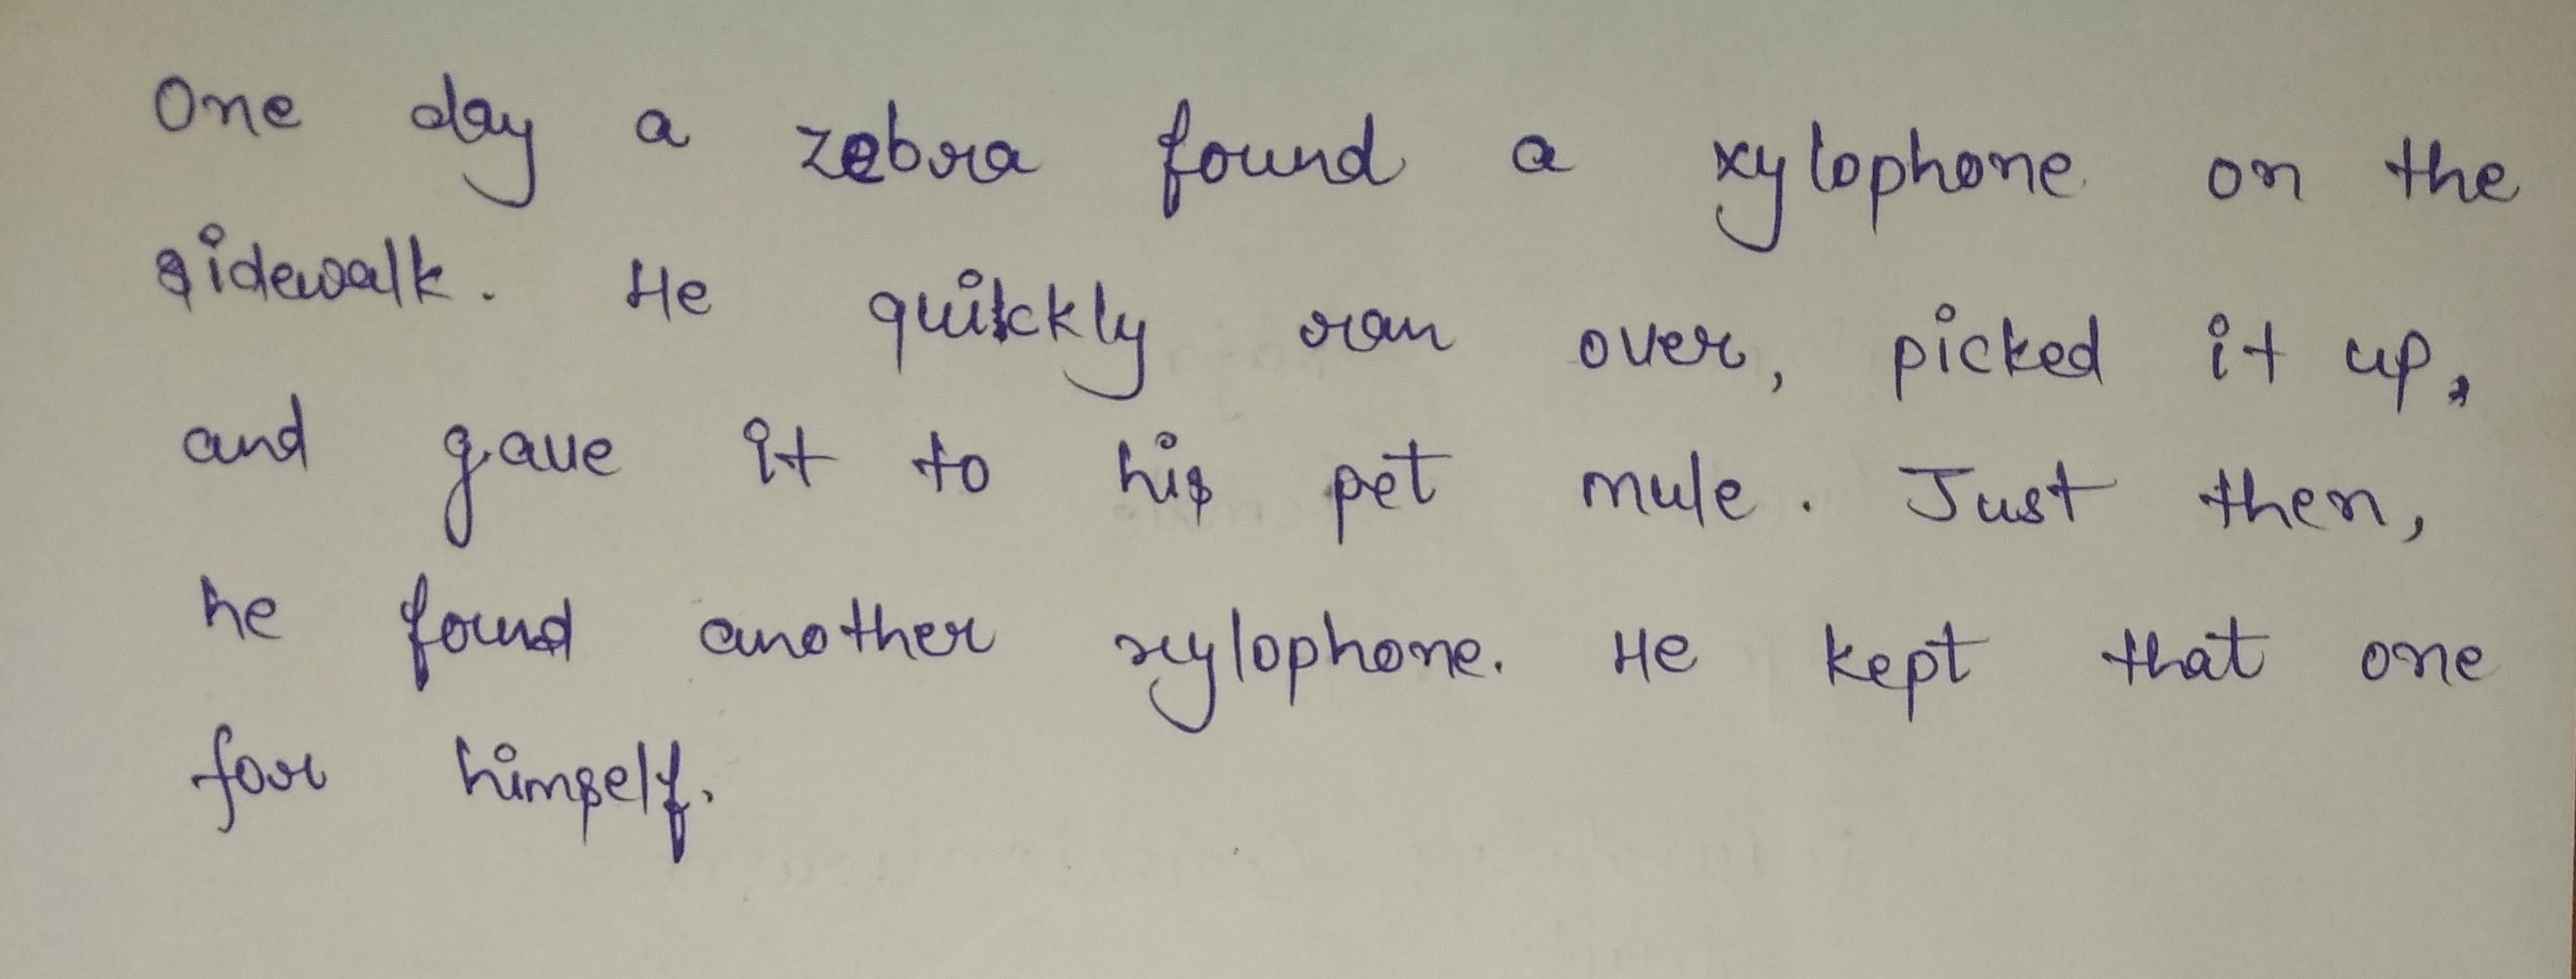 One day a zebra found a xylophone on the
sidewalk. He quickly ran over, picked it up,
and gave it to his pet mule. Just then,
he found another xylophone. He kept that one
for himself.